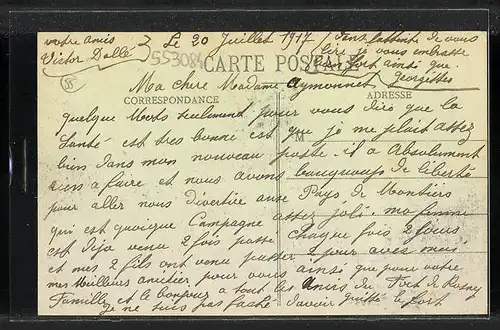 Le 20 Juillet 1917
553084
CARTE POSTALE
CORRESPONDANCE
ADRESSE
M
Ma chere Madame Aymonnet
quelque Mots seulement pour vous dire que la
Santé est tres bonne est que je me plait assez
bien dans mon nouveau poste. il a Absolument
rien a faire et nous avons beaucoup de liberté
pour aller nous divertire Pays de
qui est quoique Campagne assez joli. ma femme
est deja venu 2 fois passé chaque fois 2 jours
et mes 2 fils ont venu passer 2 jour avec moi
mes Meilleurs amitier, pour vous ainsi que pour votre
Famille et le bonjour a tout les Amis du Fort de Rosny
je ne suis pas faché d'avoir quitté le fort
Dans l'attente de vous
lire je vous embrasse
fort ainsi que
Georgettes
votre amis
Victor Dallé